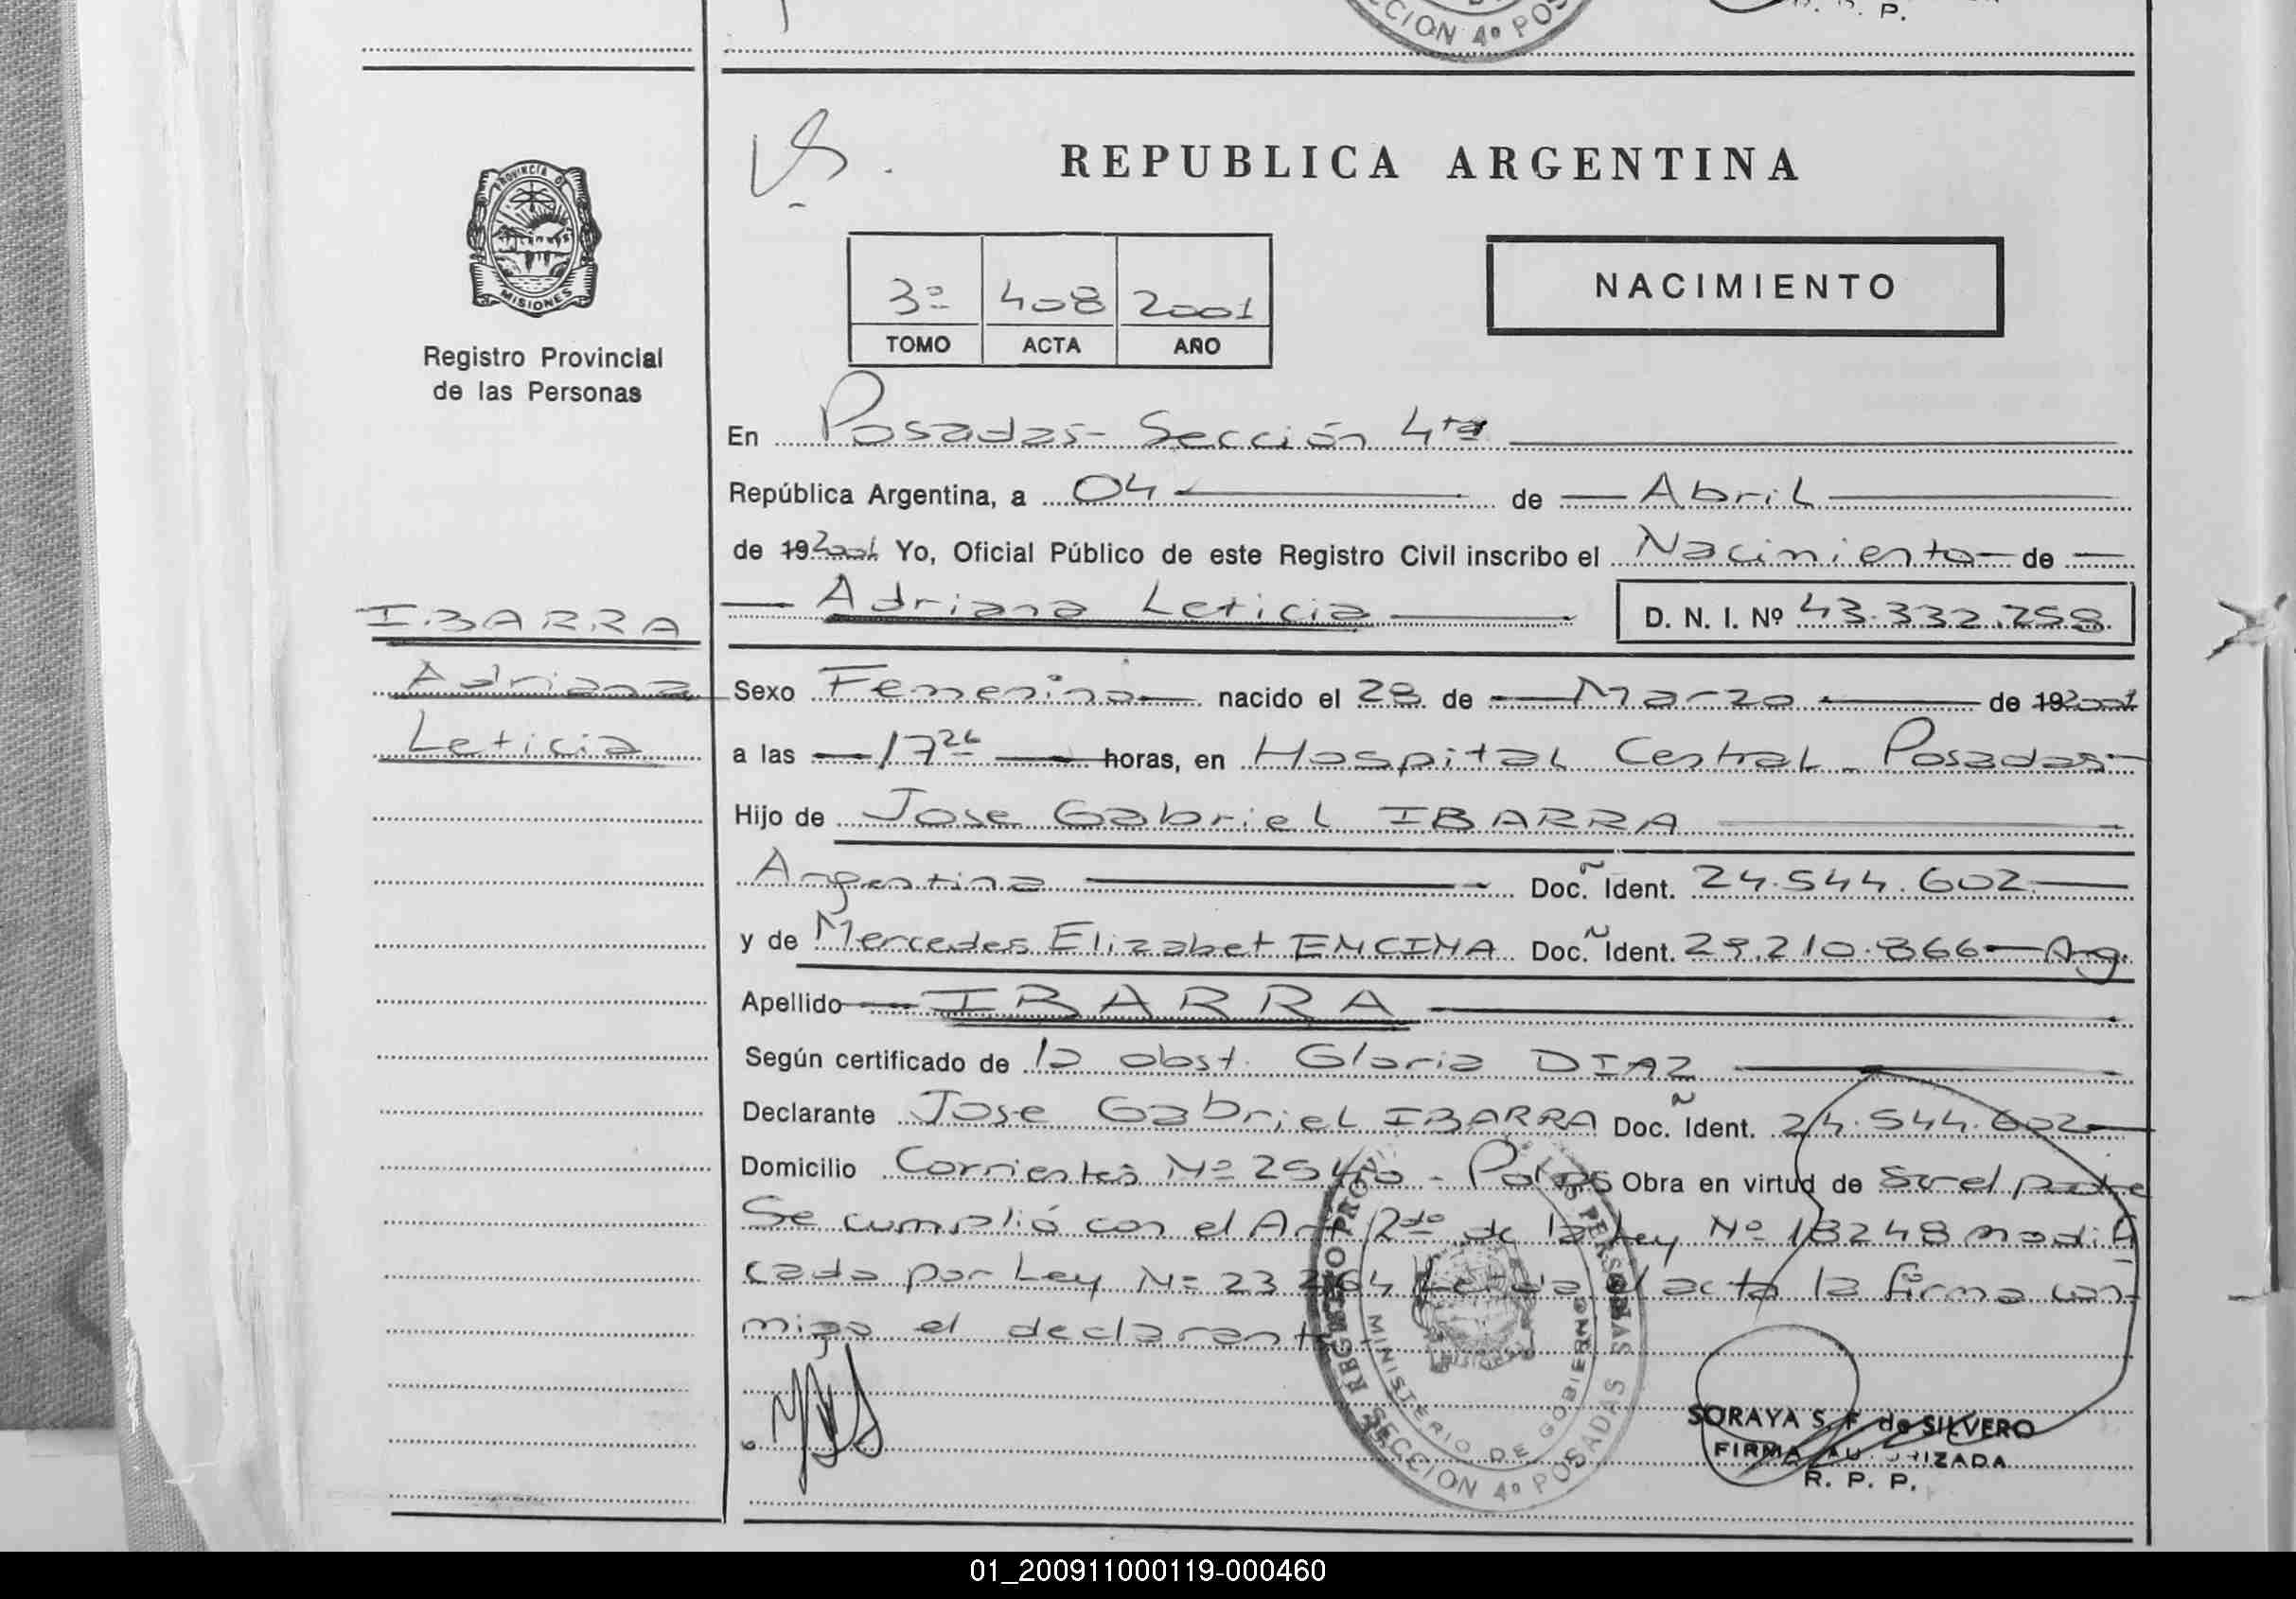 CCION 4º POS
R. P. P.
PROVINCIA DE
MISIONES
Registro Provincial
de las Personas
REPUBLICA ARGENTINA
3º 408 2001
TOMO ACTA AÑO
NACIMIENTO
En Posadas - Sección 4ta
República Argentina, a 04 de Abril
de 19 2001 Yo, Oficial Público de este Registro Civil inscribo el Nacimiento de
IBARRA
Adriana Leticia D. N. I. Nº 43.332.758
Adriana
Sexo Femenino nacido el 28 de Marzo de 19 2001
Leticia
a las 17 26 horas, en Hospital Central - Posadas -
Hijo de Jose Gabriel IBARRA
Argentina Doc. Ident. 24.544.602
y de Mercedes Elizabet ENCINA Doc. Ident. 29.210.866 - Arg.
Apellido IBARRA
Según certificado de la obst. Gloria DIAZ
Declarante Jose Gabriel IBARRA Doc. Ident. 24.544.602
Domicilio Corrientes Nº Obra en virtud de Ser el padre
Se cumplió con el Art 2do de la Ley Nº 18248 modifi
cada por Ley Nº 23 264 acta la firma con
migo el declarante
REGISTRO PROV. DE LAS PERSONAS
MINISTERIO DE GOBIERNO
SECCION 4º POSADAS
SORAYA S. F. de SILVERO
FIRMA AUTORIZADA
R. P. P.
01_200911000119-000460